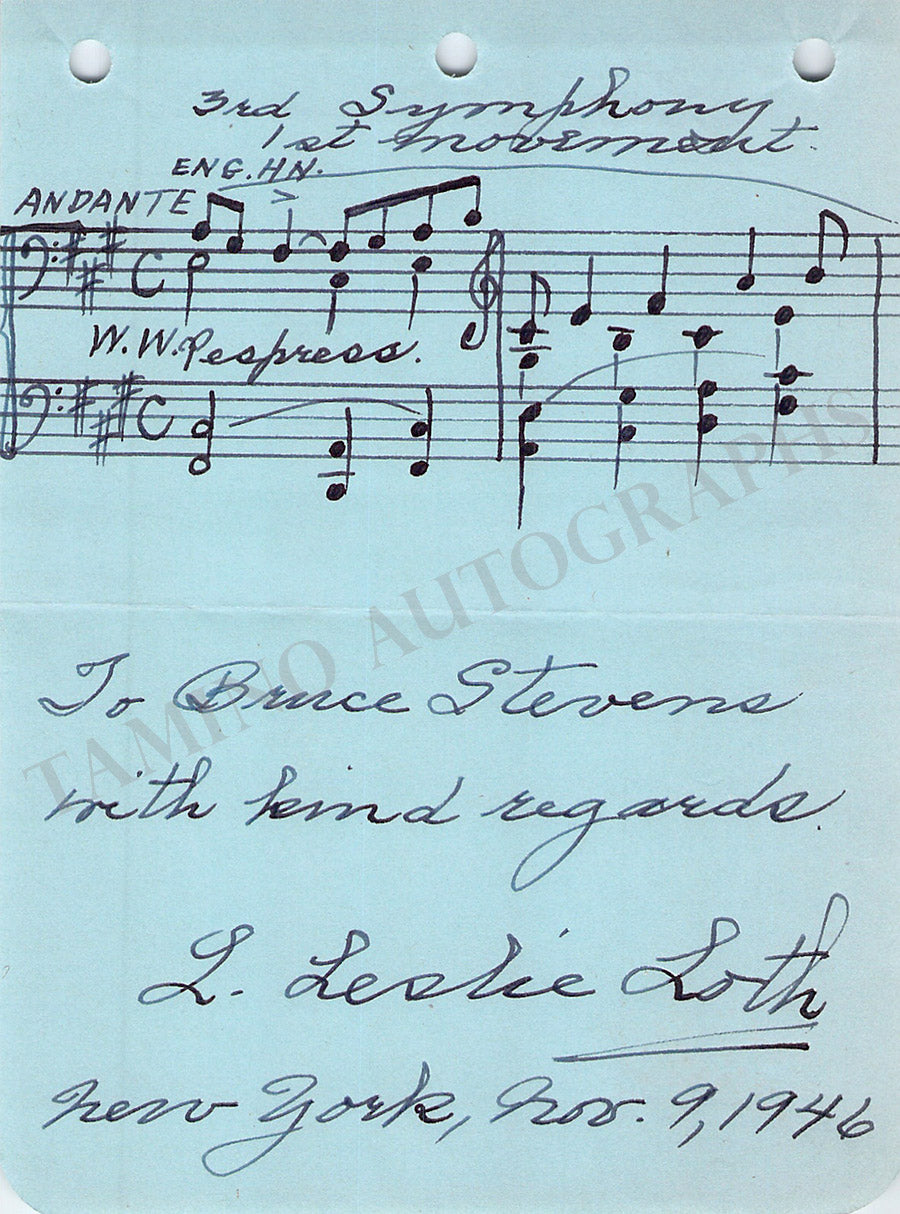 3rd Symphony
1st movement.
ENG. HN.
ANDANTE
W.W. P espress.
To Bruce Stevens
with kind regards.
L. Leslie Loth
New York, Nov. 9, 1946
TAMINO AUTOGRAPHS